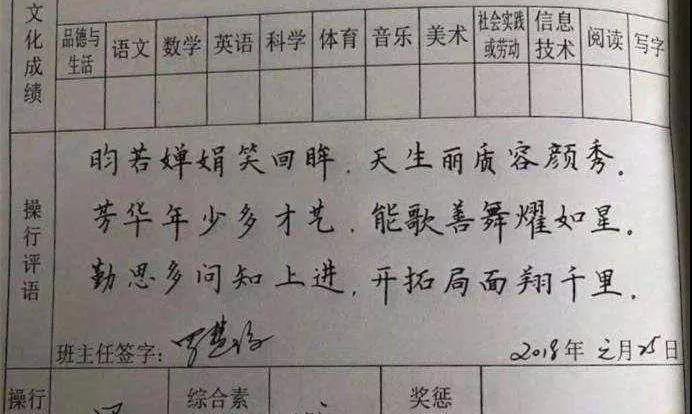 文化成绩
品德与生活 语文 数学 英语 科学 体育 音乐 美术 社会实践或劳动 信息技术 阅读 写字
操行评语
昀若婵娟笑回眸，天生丽质容颜秀。
芳华年少多才艺，能歌善舞耀如星。
勤思多问知上进，开拓局面翔千里。
班主任签字： 2018年元月25日
操行 综合素 奖惩